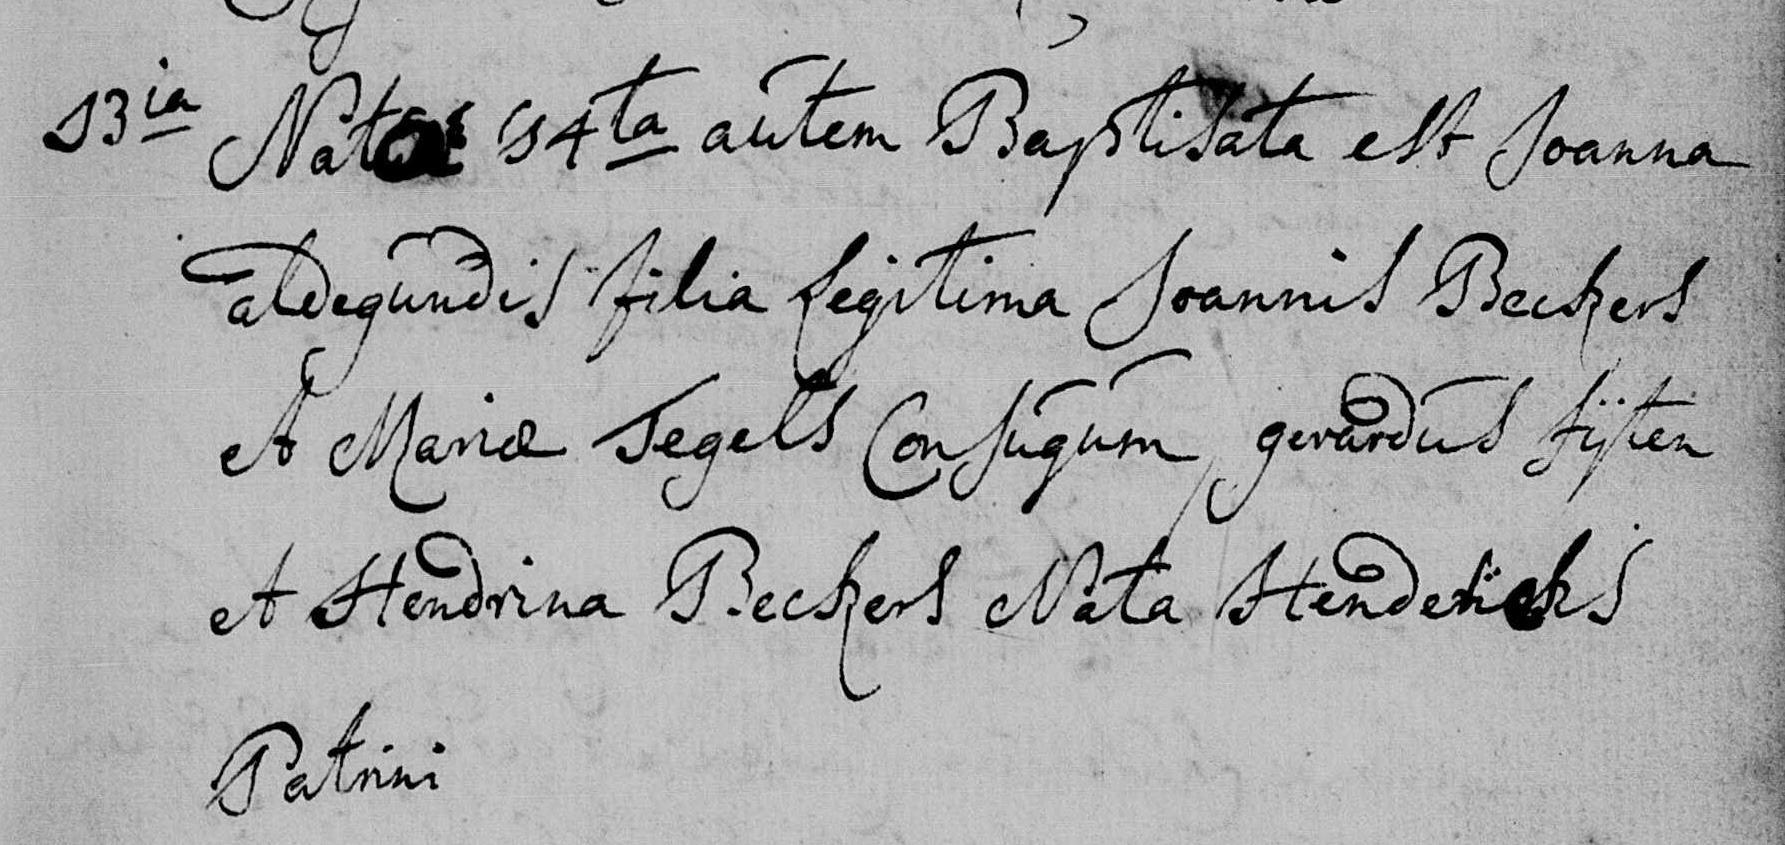 13ia Nata 14ta autem Baptisata est Joanna
aldegundis filia legitima Joannis Beckers
et Mariæ Segels Conjugum, gerardus sijten
et Hendrina Beckers Nata Hendericks
Patrini